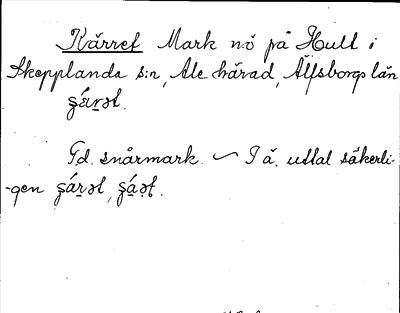 Kärret Mark n:ö på Hult i
Skepplanda s:n, Ale härad, Älfsborgs län
ʂár̠ət.
F.d. snårmark. ~ I ä. uttal säkerli-
-gen ʂár̠ət, ʂá̠ət.